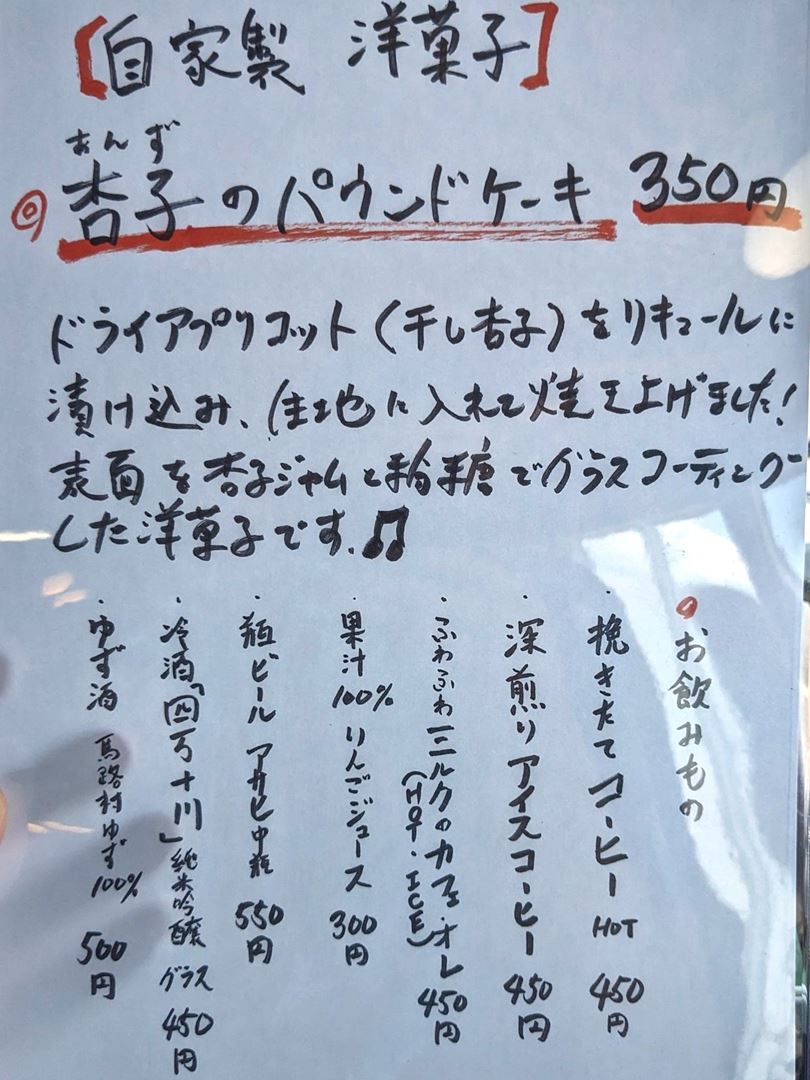 [自家製 洋菓子]
あんず
◎杏子のパウンドケーキ 350円
ドライアプリコット(干し杏子)をリキュールに
漬け込み、生地に入れて焼き上げました!
表面を杏子ジャムと粉糖でグラスコーティング
した洋菓子です。♫
お飲みもの
・挽きたてコーヒー HOT 450円
・深煎りアイスコーヒー 450円
・ふわふわミルクのカフェ・オレ 450円
(HOT・ICE)
・果汁100% りんごジュース 300円
・瓶ビール アサヒ中瓶 550円
・冷酒「四万十川」純米吟醸 グラス 450円
・ゆず酒 馬路村ゆず100% 500円